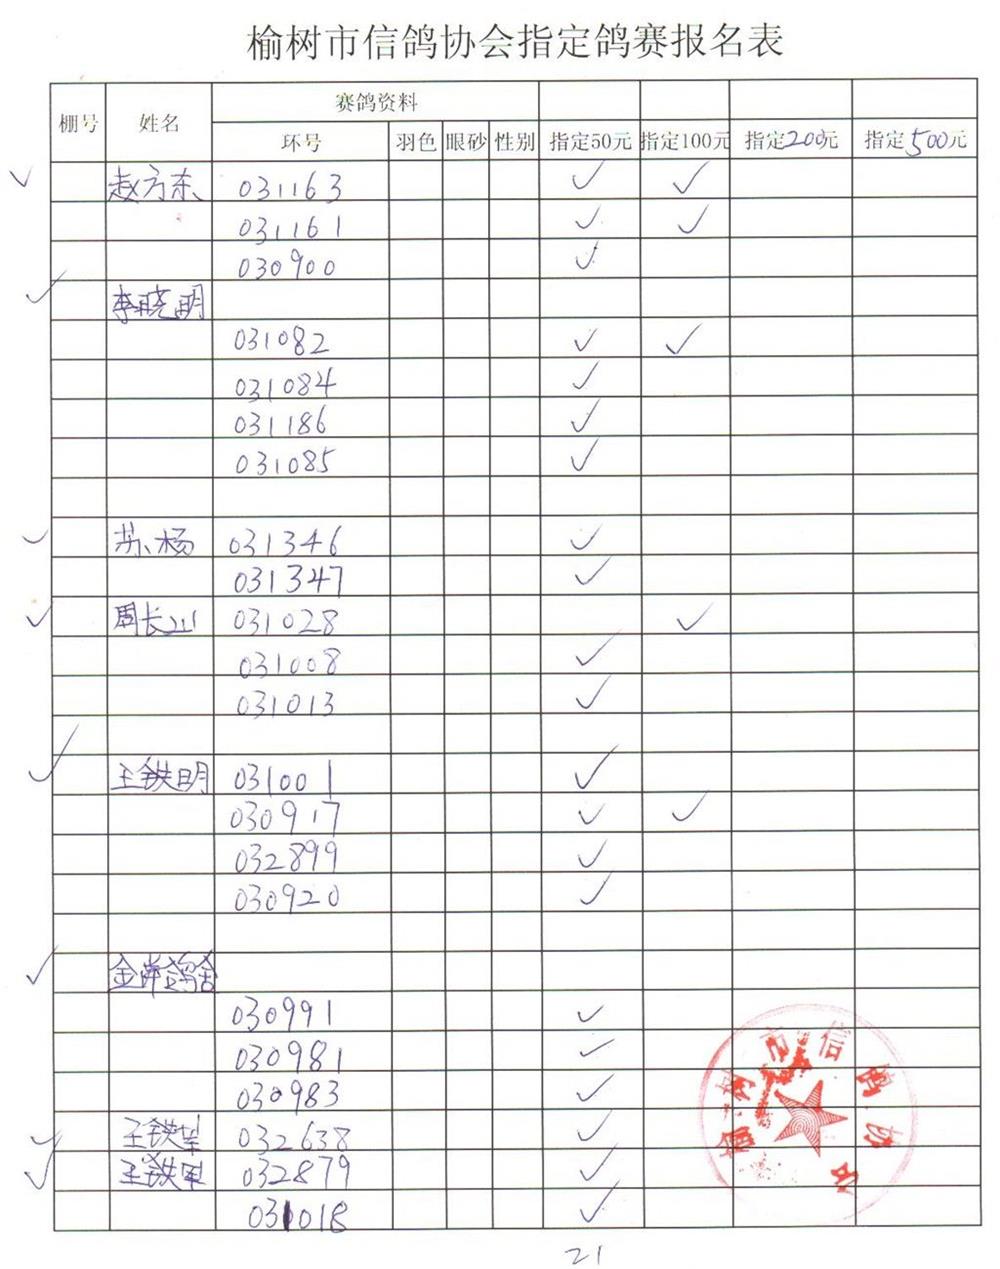 榆树市信鸽协会指定鸽赛报名表
棚号 姓名 赛鸽资料
环号 羽色 眼砂 性别 指定50元 指定100元 指定200元 指定500元
✓ 赵方东 031163 ✓ ✓
031161 ✓ ✓
030900 ✓
✓ 李晓明
031082 ✓ ✓
031084 ✓
031186 ✓
031085 ✓
✓ 苏杨 031346 ✓
031347 ✓
✓ 周长山 031028 ✓
031008 ✓
031013 ✓
✓ 王铁明 031001 ✓
030917 ✓ ✓
032899 ✓
030920 ✓
✓ 金岸鸽舍
030991 ✓
030981 ✓
030983 ✓
✓ 王铁 032638 ✓
✓ 王铁军 032879 ✓
031018 ✓
21
榆树市信鸽协会